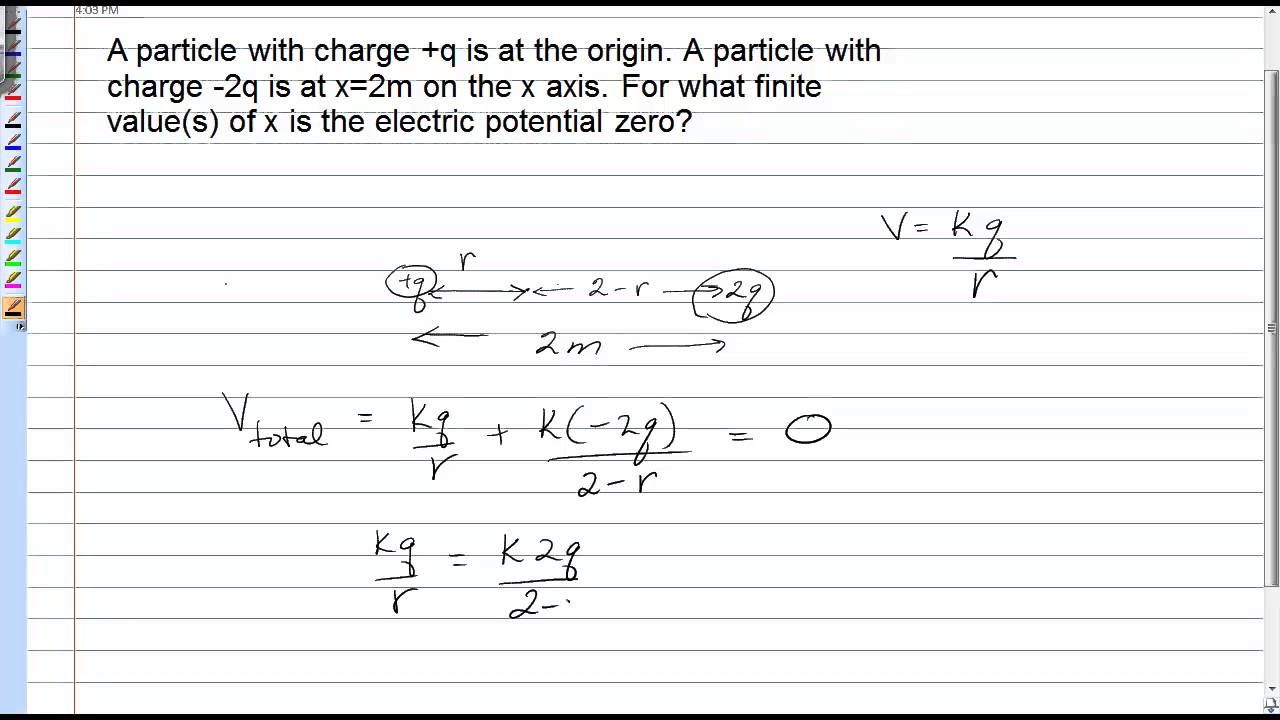 4:03 PM
A particle with charge +q is at the origin. A particle with
charge -2q is at x=2m on the x axis. For what finite
value(s) of x is the electric potential zero?
V = Kq/r
r
+q 2-r -2q
2m
V total = Kq/r + K(-2q)/2-r = 0
Kq/r = K2q/2-